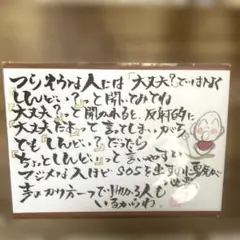 つらそうな人には「大丈夫?」ではなく
「しんどい?」って聞いてみてね
「大丈夫?」って聞かれると、反射的に
「大丈夫だよ」って言ってしまいがち
でも「しんどい?」だったら
「ちょっとしんどい」って言いやすい
マジメな人ほどSOSを出すのに勇気が必要
声のかけ方一つで助かる人も
いるからね